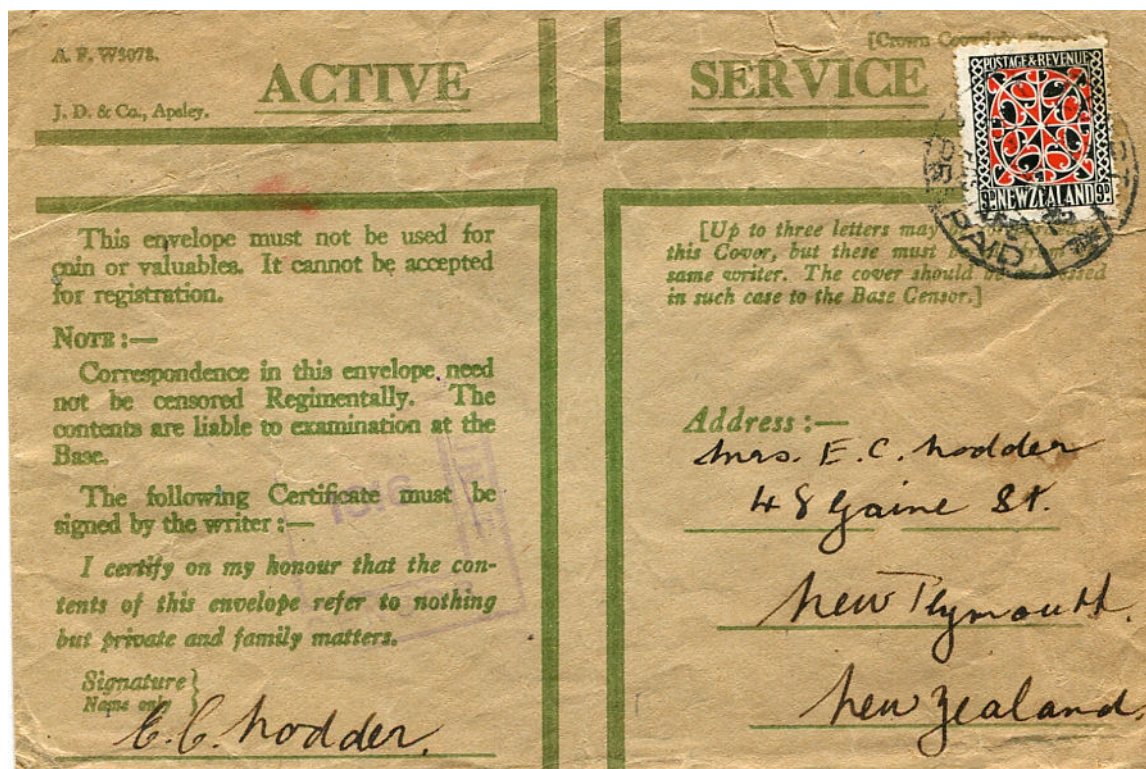 A. F. W3078.
[Crown Copyright
ACTIVE SERVICE
J. D. & Co., Apsley.
POSTAGE & REVENUE
9D NEW ZEALAND 9D
PAID
This envelope must not be used for
coin or valuables. It cannot be accepted
for registration.
NOTE :—
Correspondence in this envelope need
not be censored Regimentally. The
contents are liable to examination at the
Base.
The following Certificate must be
signed by the writer :—
I certify on my honour that the con-
tents of this envelope refer to nothing
but private and family matters.
Signature }
Name only
E. C. Hodder.
[Up to three letters may
this Cover, but these must
same writer. The cover should be
in such case to the Base Censor.]
Address :—
Mrs. E. C. Hodder
48 Gaine St.
New Plymouth.
New Zealand